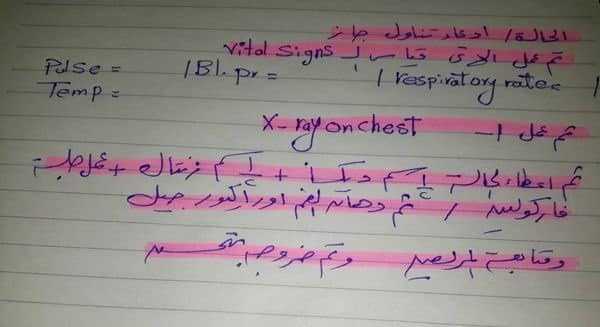 الحالة / ادعاء تناول جاز
تم عمل الاتى قياس ال Vital Signs
Pulse = / Bl. pr = / respiratory rate =
Temp =
تم عمل 1- X-ray on chest
تم اعطاء الحالة 1/2 كم ديكسا + 1/2 كم زنتاك + عمل جلسة
فاركولين / تم دهان الفم اوراكيور جيل
ومتابعة المريض وتم خروجه بتحسن